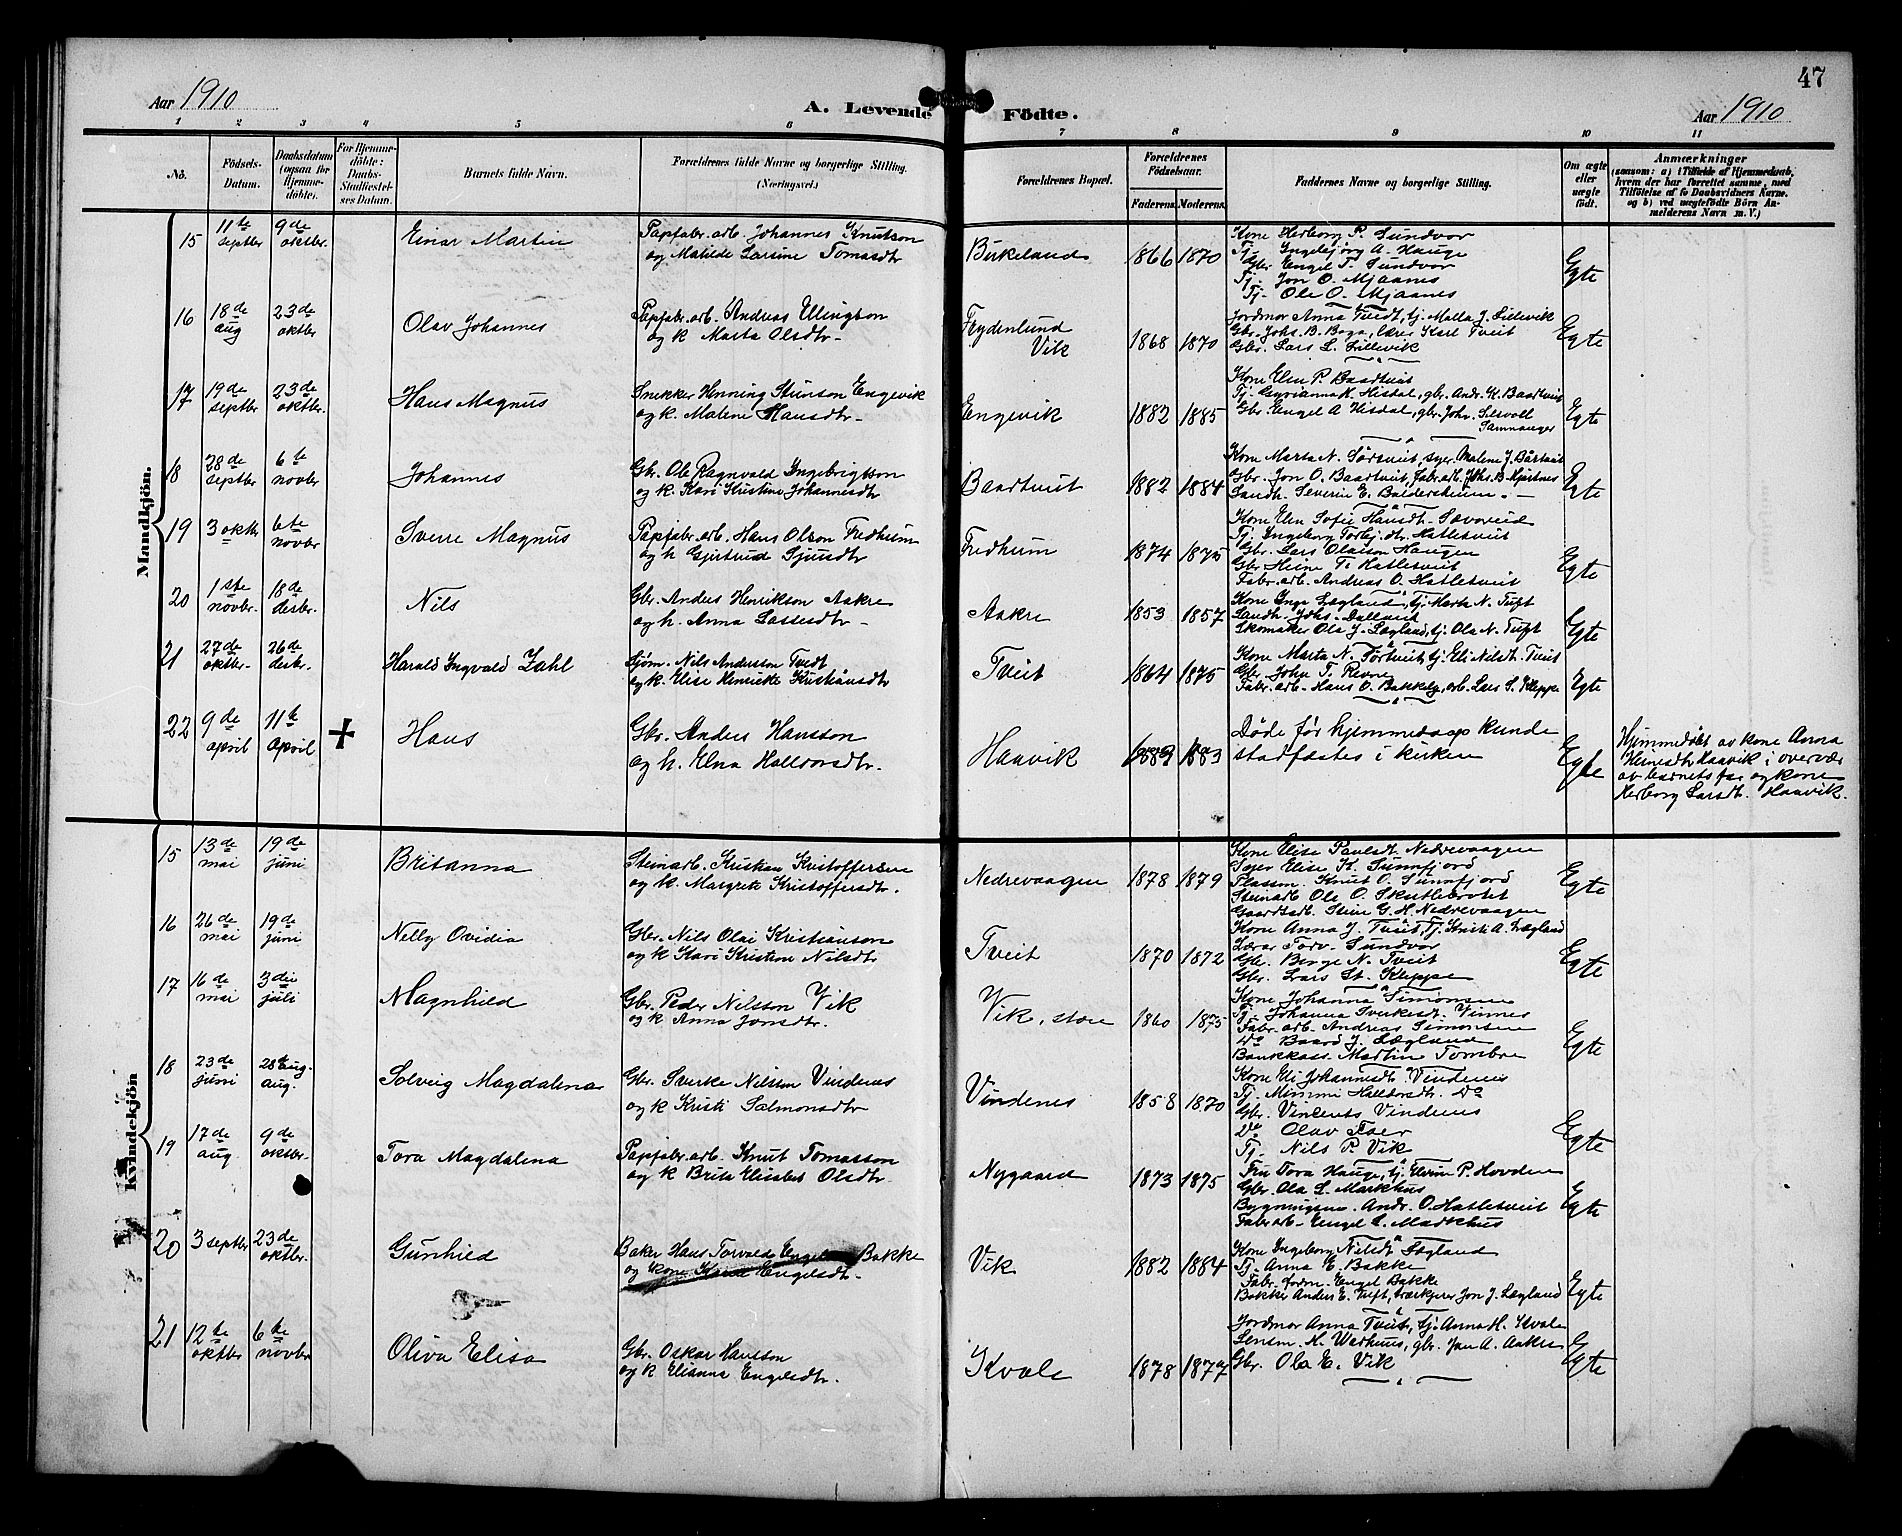 47
Aar 1910
A. Levende Födte.
Aar 1910
1 2 3 4 5 6 7 8 9 10 11
No.
Födsels-Datum.
Daabsdatum (ogsaa for Hjemme-döbte).
For Hjemme-döbte: Daabs-Stadfæstel-ses Datum.
Barnets fulde Navn.
Forældrenes fulde Navne og borgerlige Stilling.
(Næringsvei.)
Forældrenes Bopæl.
Forældrenes Födselsaar.
Faderens. Moderens.
Faddernes Navne og borgerlige Stilling.
Om ægte eller uægte födt.
Anmærkninger
(saasom: a) i Tilfælde af Hjemmedaab, hvem der har forrettet samme, med Tilföielse af to Daabsvidners Navne, og b) ved uægtefödte Börn Anmelderens Navn m. V.)
Mandkjön.
15 11te septbr 9de oktbr. Einar Martin
Papfabr. arb. Johannes Knutson
og Matilde Larsine Tomasdtr
Birkeland 1866 1870
Kone Herborg P. Sundvor
Tj. Ingebjørg A. Hauge
Gbr. Engel T. Sundvor
Tj. Jon O. Mjaanes
Tj. Ole O. Mjaanes
Egte
16 18de aug 23de oktbr Olav Johannes
Papfabr. arb. Andreas Ellingson
og k Marta Olsdtr
Frydenlund Vik 1868 1870
Jordmor Anna Tveit, tj. Malla J. Lillevik
Gbr. Johs. B. Boga, lærer Karl Tveit
Gbr. Lars L. Lillevik
Egte
17 19de septbr 23de oktbr. Hans Magnus
Snekker Henning Engevik
og k. Malene Hansdtr
Engevik 1882 1885
Kone Elen P. Baadtveit
Tj. K. Hisdal, gbr. Andr. K. Baadtveit
Gbr. Engel A Hisdal, gbr. Johs.
Samnanger
Egte
18 28de septbr 6te novbr Johannes
Gbr. Ole Ragnvald Ingebrigtson
og k. Kari Kristine Johannesdtr
Baadtveit 1882 1884
Kone Marta N. Sørtveit, syer. Malene J. Bårtveit
Gbr. Jon O. Baadtveit, fabr. arb. Johs. B.
Landh. Severin E. Baldersheim
Egte
19 3 oktbr 6te novbr Sverre Magnus
Papfabr. arb. Hans Olson Fredheim
og h. Gjertrud Sjursdtr
Fredheim 1874 1875
Kone Elen Sofie Hansdtr. Sævareid
Tj. Ingeborg Torbj. dtr. Hatletveit
Gbr. Lars Olaison Haugen
Gbr Heine T. Hatletveit
Fabr. arb. Andreas O. Hatletveit
Egte
20 1ste novbr. 18de desbr. Nils
Gbr. Anders Henrikson Aakre
og h. Anna Lassesdtr
Aakre 1853 1857
Kone Inga Lægland, tj. Marta N. Tuft
Landh. Johs.
Skomaker Ola J. Lægland, tj. Ola N. Tuft
Egte
21 27de oktbr. 26de desbr. Harald Ingvald Zahl
Sjøm. Nils Andersson Tvedt
og k. Elise Henrikke Kristiansdtr
Tveit 1864 1875
Kone Marta N. Tørtveit, tj. Eli Nilsdt. Tveit
Gbr. John T. Revne
Fabr. arb. Hans O. Bakkely, arb. Lars S. Kleppe
Egte
22 9de april 11te april + Hans
Gbr. Anders Hansson
og h. Elna Halldorsdtr.
Haavik 1883 1883
Døde før hjemmedaap kunde
stadfæstes i kirken
Egte
Hjemmedøbt av kone Anna
Heinesdtr Haavik i overvær
av barnets far og kone
Herborg Larsdt. Haavik.
Kvindekjön
15 13de mai 19de juni Britanna
Steinarb. Kristian Kristoffersen
og k. Margrete Kristoffersdtr.
Nedrevaagen 1878 1879
Kone Elise Paulsdt. Nedrevaagen
Syer Elise K. Sunnfjord
Plassm. Knut O. Sunnfjord
Steinarb Ole O. Skutlebrotet
Gaardarb. Steine G. H. Nedrevaagen
Egte
16 26de mai 19de juni Nelly Ovidia
Gbr. Nils Olai Kristianson
og k Kari Kristine Nilsdtr
Tveit 1870 1872
Kone Anna J. Tveit, Tj. Kristi A. Lægland
Lærer Torv. Sundvor
Gbr. Birge N. Tveit
Gbr. Lars St. Kleppe
Egte
17 16de mai 3die juli Magnhild
Gbr. Peder Nilsson Vik
og k Anna Jonsdtr.
Vik, store 1860 1875
Kone Johanna Simonsen
Tj. Johanna Sverkesdt. Vinnes
Fabr. arb. Andreas Simonsen
Do Baard J. Lægland
Bankkass. Martin Tombre
Egte
18 23de juni 28de aug. aug. Solveig Magdalena
Gbr. Sverke Nilsson Vindenes
og k Kristi Salmonsdtr
Vindenes 1858 1870
Kone Eli Johannesdt. Vindenes
Tj. Mimmi Halldorsdt. Do
Gbr. Vincents Vindenes
Do Olav Foer
Tj. Nils P. Vik
Egte
19 17de aug. 9de oktbr. Tora Magdalena
Papfabr. arb. Knut Tomasson
og k Brita Elisabet Olsdtr.
Nygaard 1873 1875
Fru Tora Hauge, tj. P. Hovden
Gbr. Ola L. Markhus
Bygningsm. Andr. O. Hatletveit
Fabr. arb. Engel L. Markhus
Egte
20 3 septbr 23de oktbr. Gunhild
Baker Hans Torvald Bakke
og kone Engelsdt.
Vik 1882 1884
Kone Ingeborg Nilsdt Lægland
Tj. Anna E. Bakke
Fabr. form. Engel Bakke
Bakker Anders E. Tuft, værkejer Jon J. Lægland
Egte
21 12te oktbr 6te novbr Oliva Elisa
Gbr. Oskar Hansson
og k Elianna Engelsdtr.
Kvale 1878 1877
Jordmor Anna Tveit, tj. Anna H. Kvale
Lensm. H. Warhuus, gbr. Jon A. Aakre
Gbr. Ola E. Vik
Egte